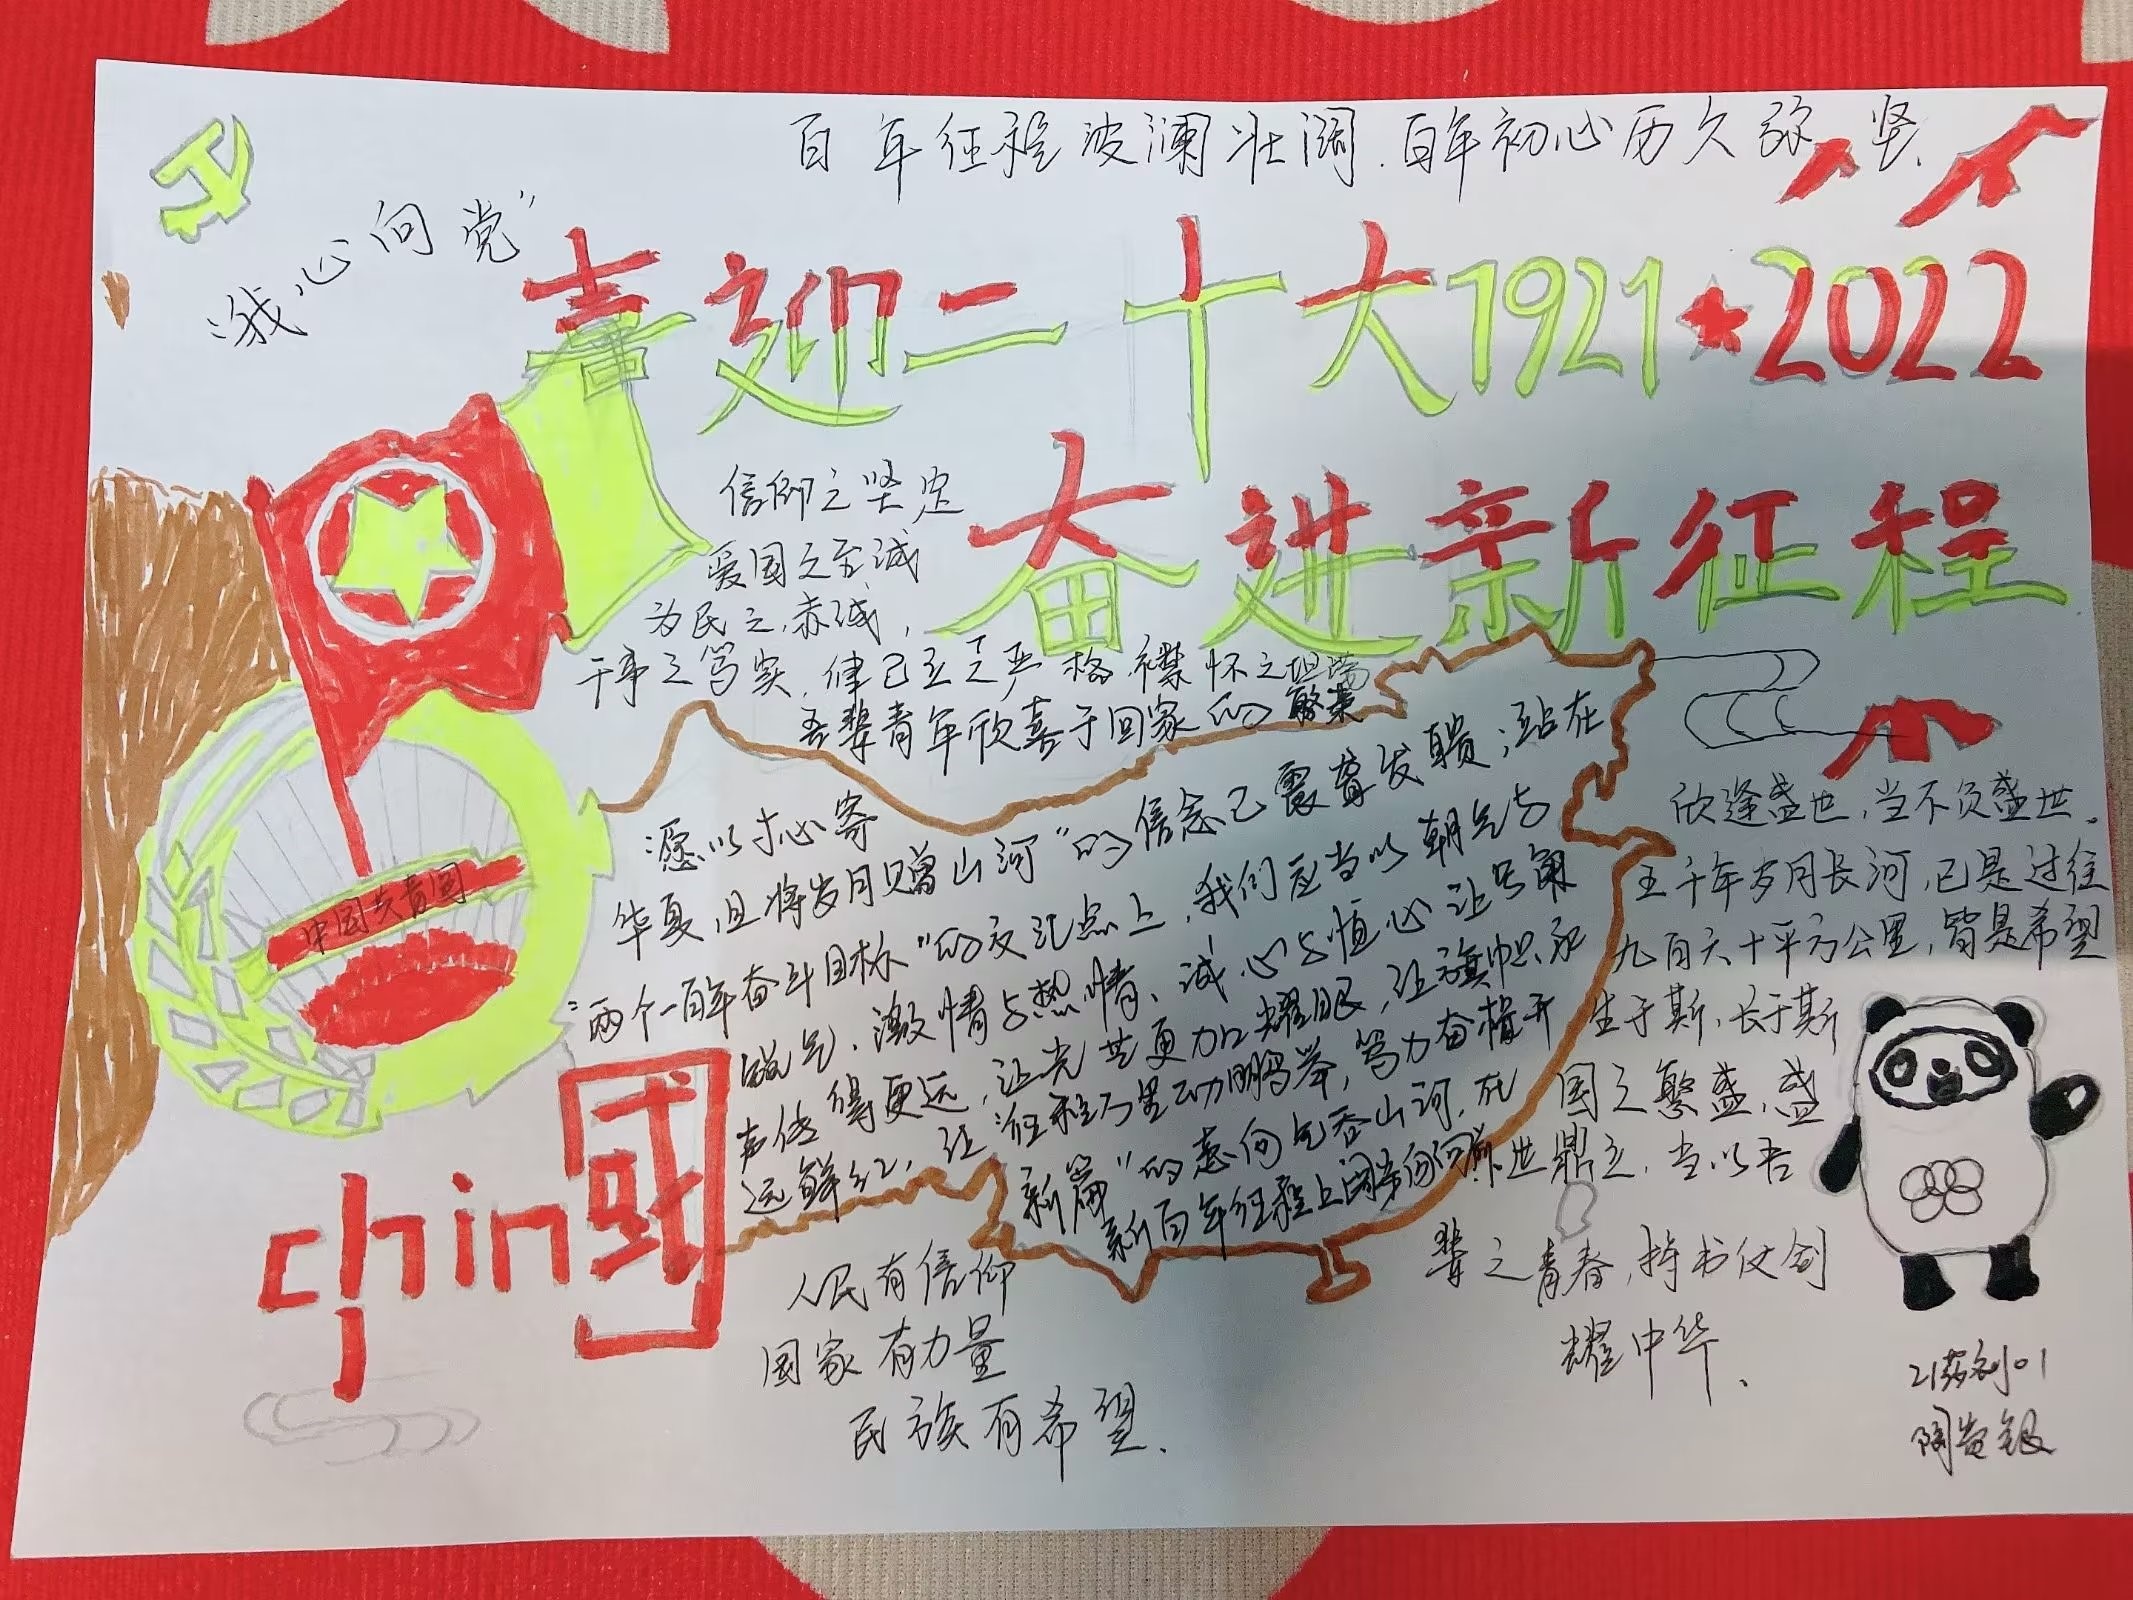 百年征程波澜壮阔.百年初心历久弥坚.
"我心向党"
喜迎二十大1921★2022
奋进新征程
信仰之坚定
爱国之至诚
为民之赤诚,
干事之笃实,律己之严格,襟怀之坦荡
吾辈青年欣喜于国家的繁荣
愿以寸心寄
华夏,且将岁月赠山河"的信念已震聋发聩;站在
"两个一百年奋斗目标"的交汇点上,我们应当以朝气与
锐气、激情与热情、诚心与恒心让号角
声传得更远,让光芒更加耀眼,让旗帜永
远鲜红,让征程万里 鹏举,笃力奋楫开
新篇"的志向气吞山河,在
新百年征程上阔步向前
中国共青团
chin國
人民有信仰
国家有力量
民族有希望.
欣逢盛世,当不负盛世。
五千年岁月长河,已是过往
九百六十平方公里,皆是希望
生于斯,长于斯
国之繁盛,盛
世鼎立,当以吾
辈之青春,捧书仗剑
耀中华.
21药剂01